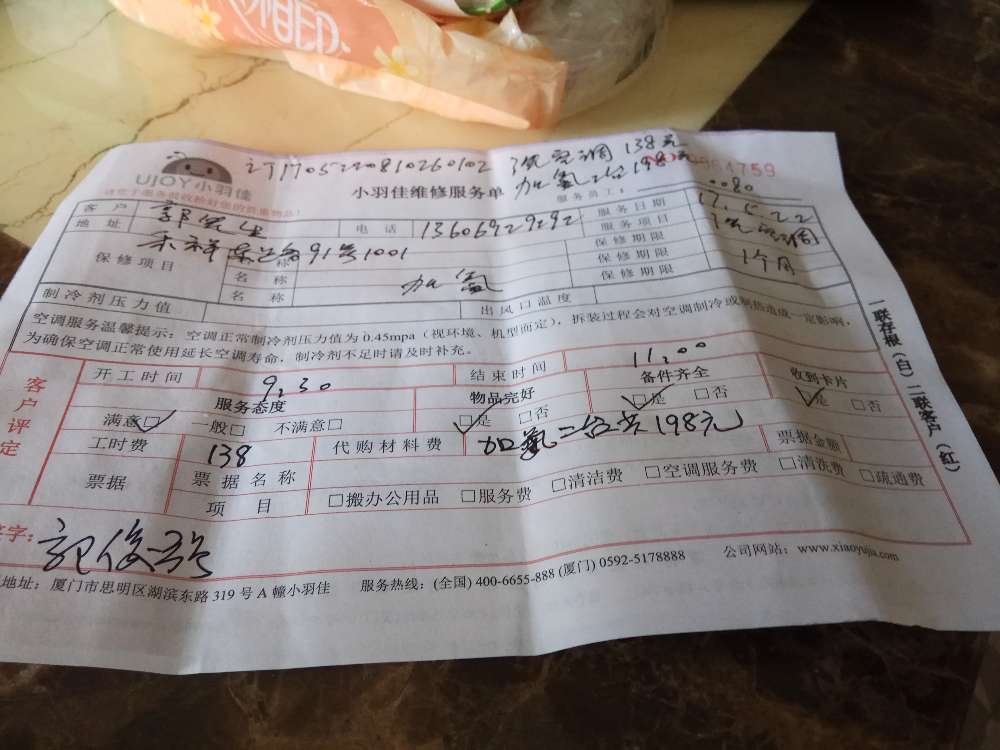 订1705220810260102 洗空调 138元
加氟二台198元
UJOY小羽佳 小羽佳维修服务单 服务员工: 0080
客户 郭先生 电话 13606929292 服务日期 17.5.22
地址 禾祥东路91号1001 服务项目 洗空调
保修项目 名称 保修期限 1个月
名称 加氟 保修期限
名称 保修期限
制冷剂压力值 出风口温度
空调服务温馨提示:空调正常制冷剂压力值为0.45mpa(视环境、机型而定),拆装过程会对空调制冷或制热造成一定影响,
为确保空调正常使用延长空调寿命,制冷剂不足时请及时补充。
客户评定
开工时间 9:30 结束时间 11:00
服务态度 物品完好 备件齐全 收到卡片
满意□ 一般□ 不满意□ □是 □否 □是 □否 □是 □否
工时费 138 代购材料费 加氟二台共198元 票据金额
票据 票据名称
项目 □搬办公用品 □服务费 □清洁费 □空调服务费 □清洗费 □疏通费
签字:
地址:厦门市思明区湖滨东路319号A幢小羽佳 服务热线:(全国)400-6655-888 (厦门)0592-5178888 公司网站:www.xiaoyujia.com
一联存根(白)二联客户(红)